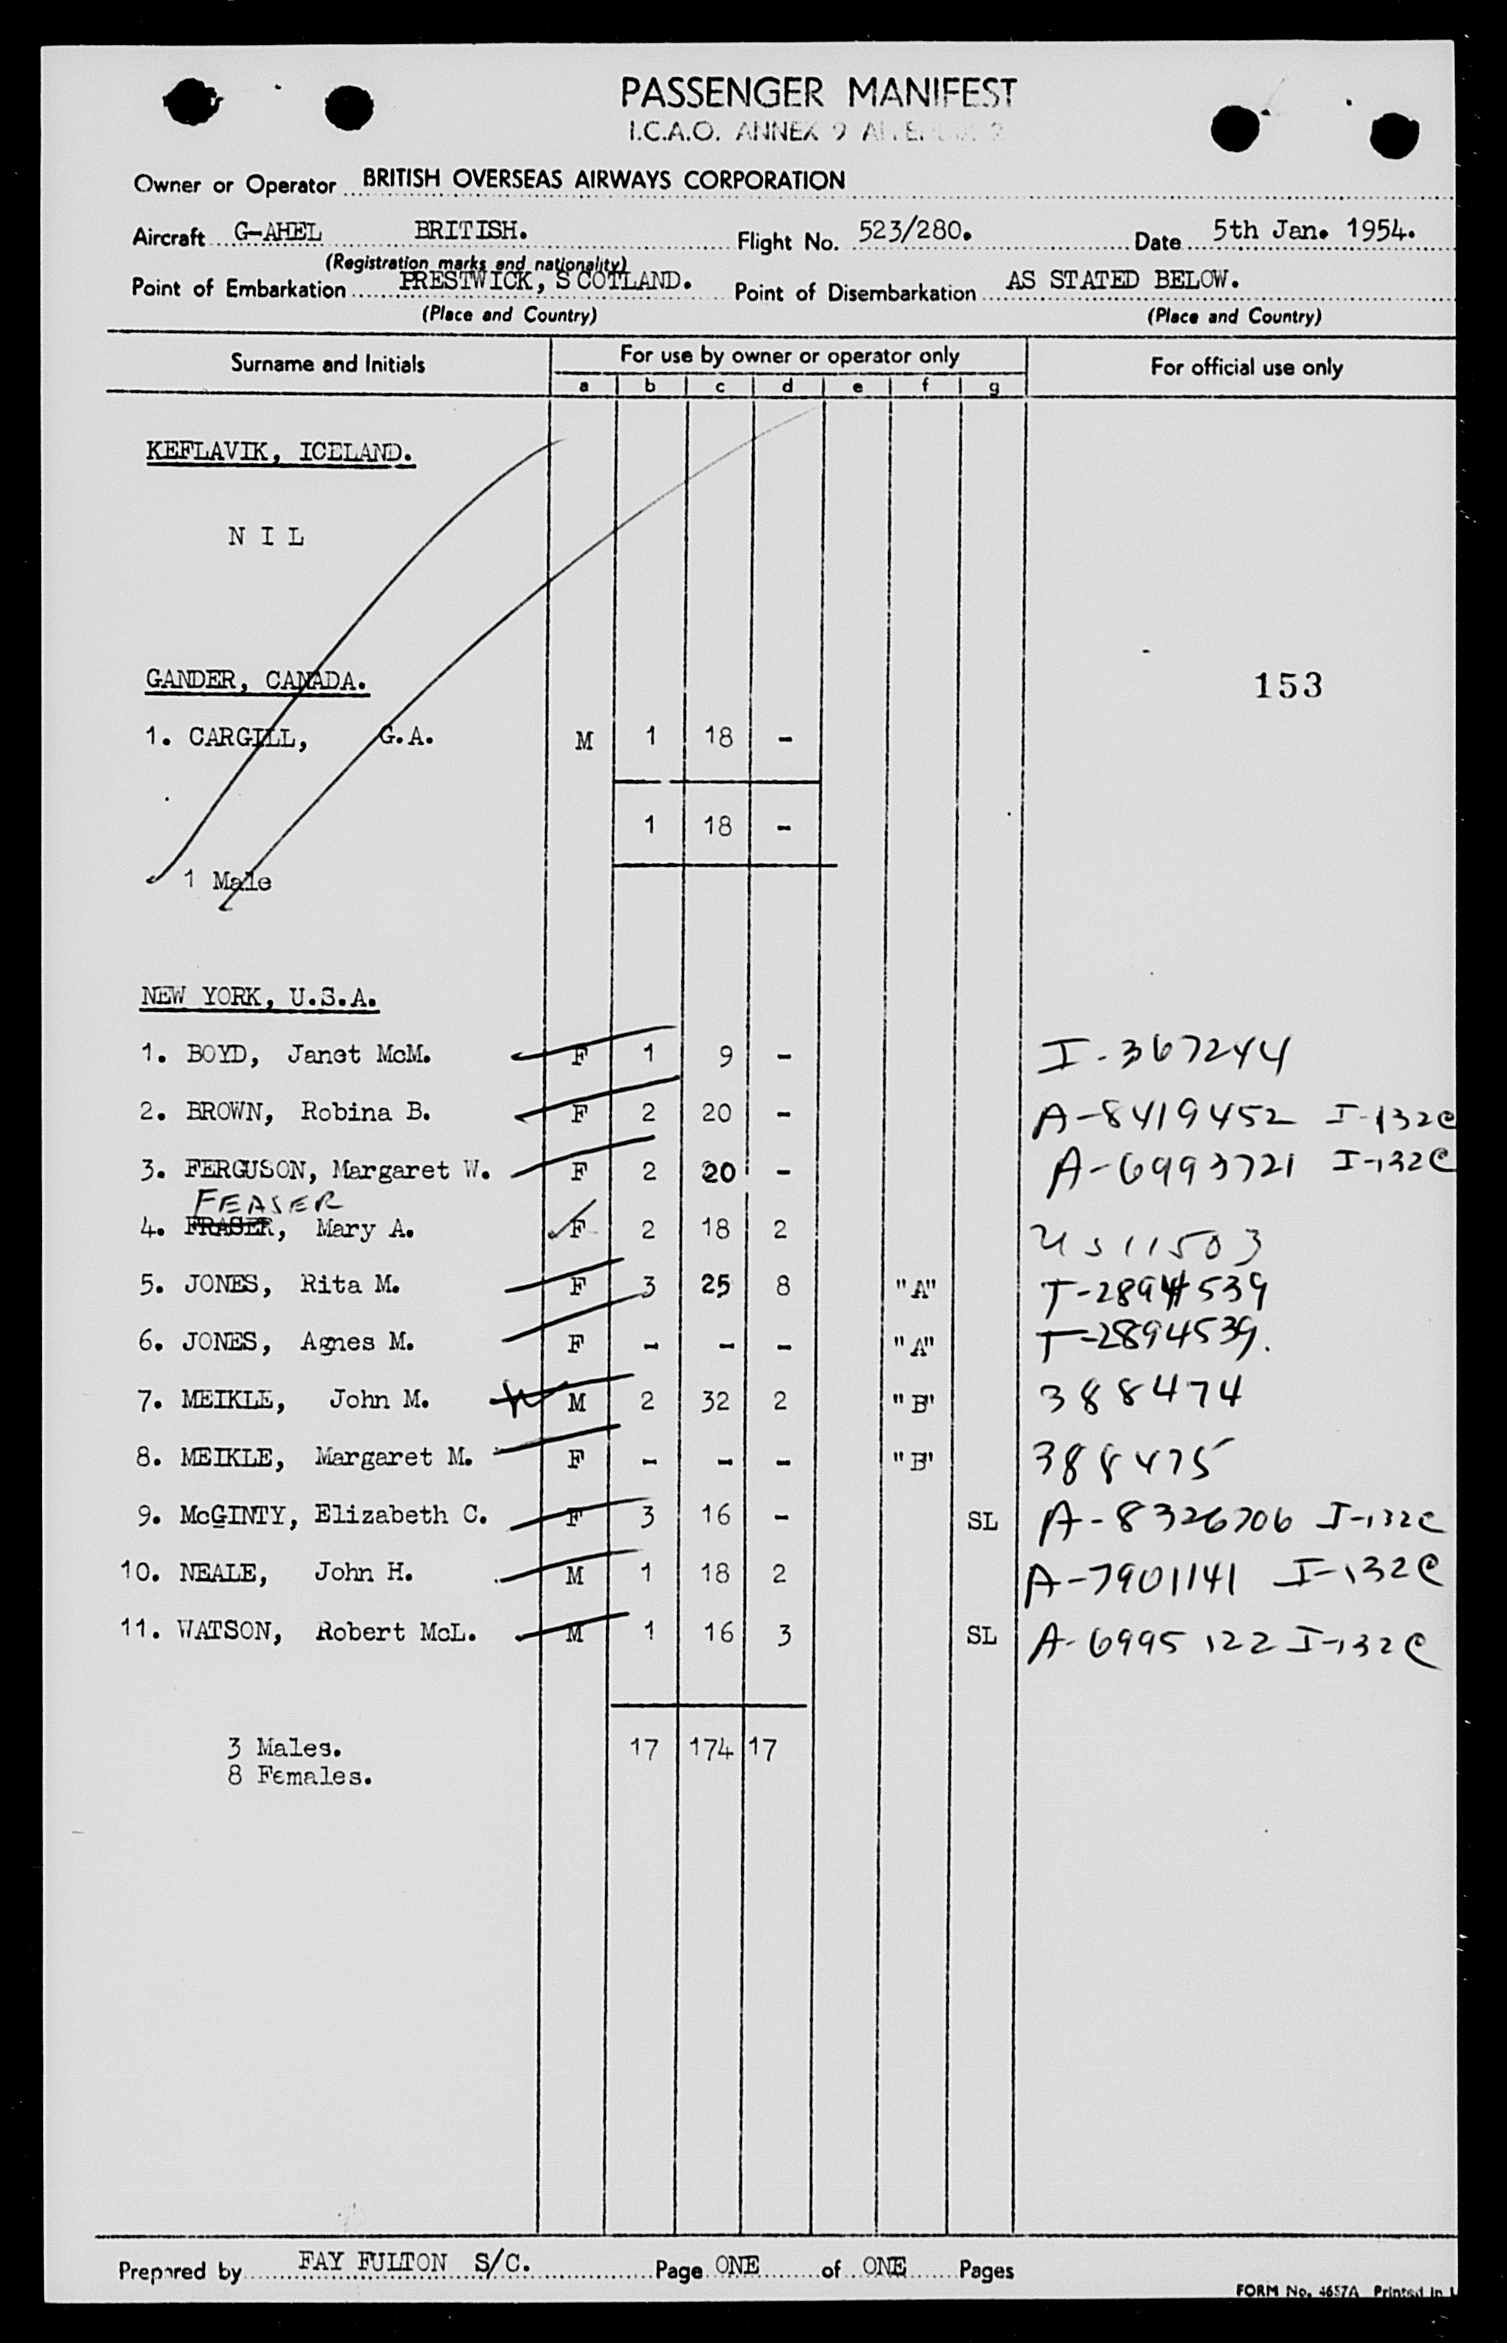 PASSENGER MANIFEST
I.C.A.O. ANNEX 9
Owner or Operator BRITISH OVERSEAS AIRWAYS CORPORATION
Aircraft G-AHEL BRITISH. Flight No. 523/280. Date 5th Jan. 1954.
(Registration marks and nationality)
Point of Embarkation PRESTWICK, SCOTLAND. Point of Disembarkation AS STATED BELOW.
(Place and Country) (Place and Country)
Surname and Initials For use by owner or operator only For official use only
a b c d e f g
KEFLAVIK, ICELAND.
N I L
GANDER, CANADA. 153
1. CARGILL, G.A. M 1 18 -
1 18 -
1 Male
NEW YORK, U.S.A.
1. BOYD, Janet McM. F 1 9 - I-367244
2. BROWN, Robina B. F 2 20 - A-8419452 I-132C
3. FERGUSON, Margaret W. F 2 20 - A-6993721 I-132C
FEASER
4. FRASER, Mary A. F 2 18 2 US11503
5. JONES, Rita M. F 3 25 8 "A" T-2894539
6. JONES, Agnes M. F - - - "A" T-2894539.
7. MEIKLE, John M. M 2 32 2 "B" 388474
8. MEIKLE, Margaret M. F - - - "B" 388475
9. McGINTY, Elizabeth C. F 3 16 - SL A-8326706 I-132C
10. NEALE, John H. M 1 18 2 A-7901141 I-132C
11. WATSON, Robert McL. M 1 16 3 SL A-6995122 I-132C
3 Males. 17 174 17
8 Females.
Prepared by FAY FULTON S/C. Page ONE of ONE Pages
FORM No. 4657A Printed in